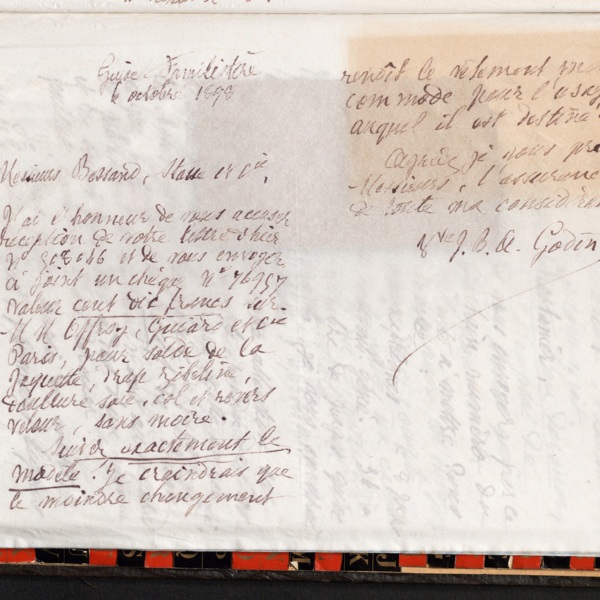 Guise Familistère
6 octobre 1898
Messieurs Bessand, et Cie,
J'ai l'honneur de vous accuser
réception de votre lettre d'hier
N° 308046 et de vous envoyer
ci joint un chèque N° 76957
valeur cent dix francs sur
M M Offroy, Guiard et Cie
Paris, pour solde de la
Jaquette, drap zibeline,
doublure soie, col et revers
velours, sans moire.
Suivez exactement le
modèle ! je craindrais que
le moindre changement
rendît le vêtement
commode pour
auquel il est destiné
Agréez je vous
Messieurs, l'assurance
de toute ma considération
Vve J. B. A. Godin